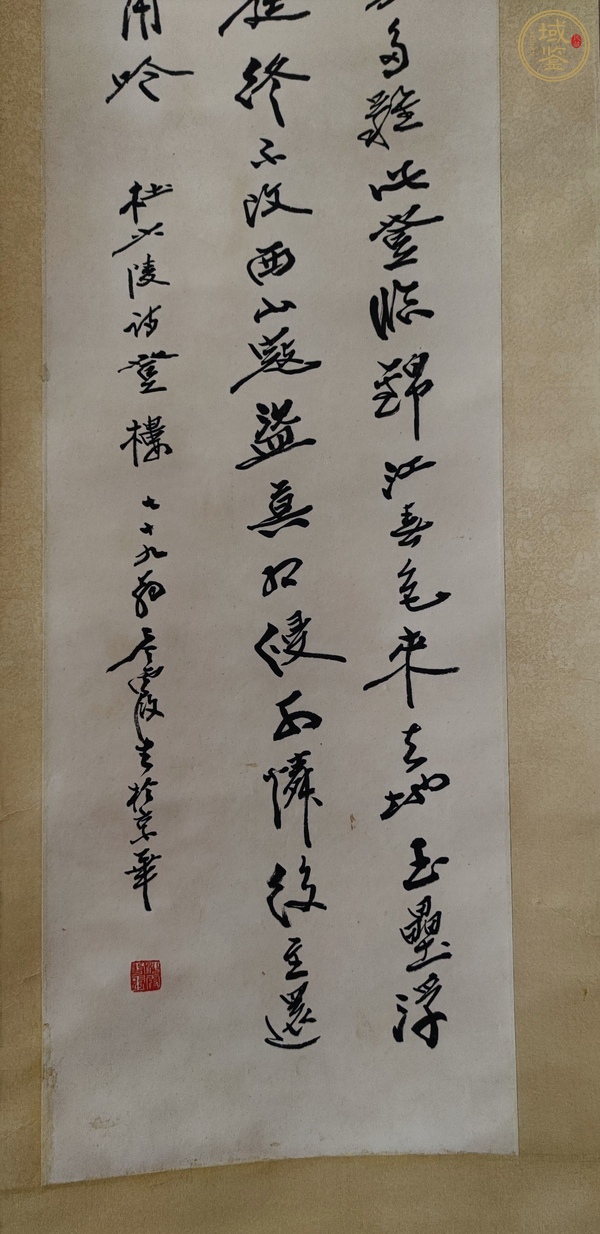 多難此登臨錦江春色來天地玉壘浮
廷終不改西山寇盜莫相侵可憐後主還
甫吟
杜少陵詩登樓 七十九 霞書於京華
域鑒